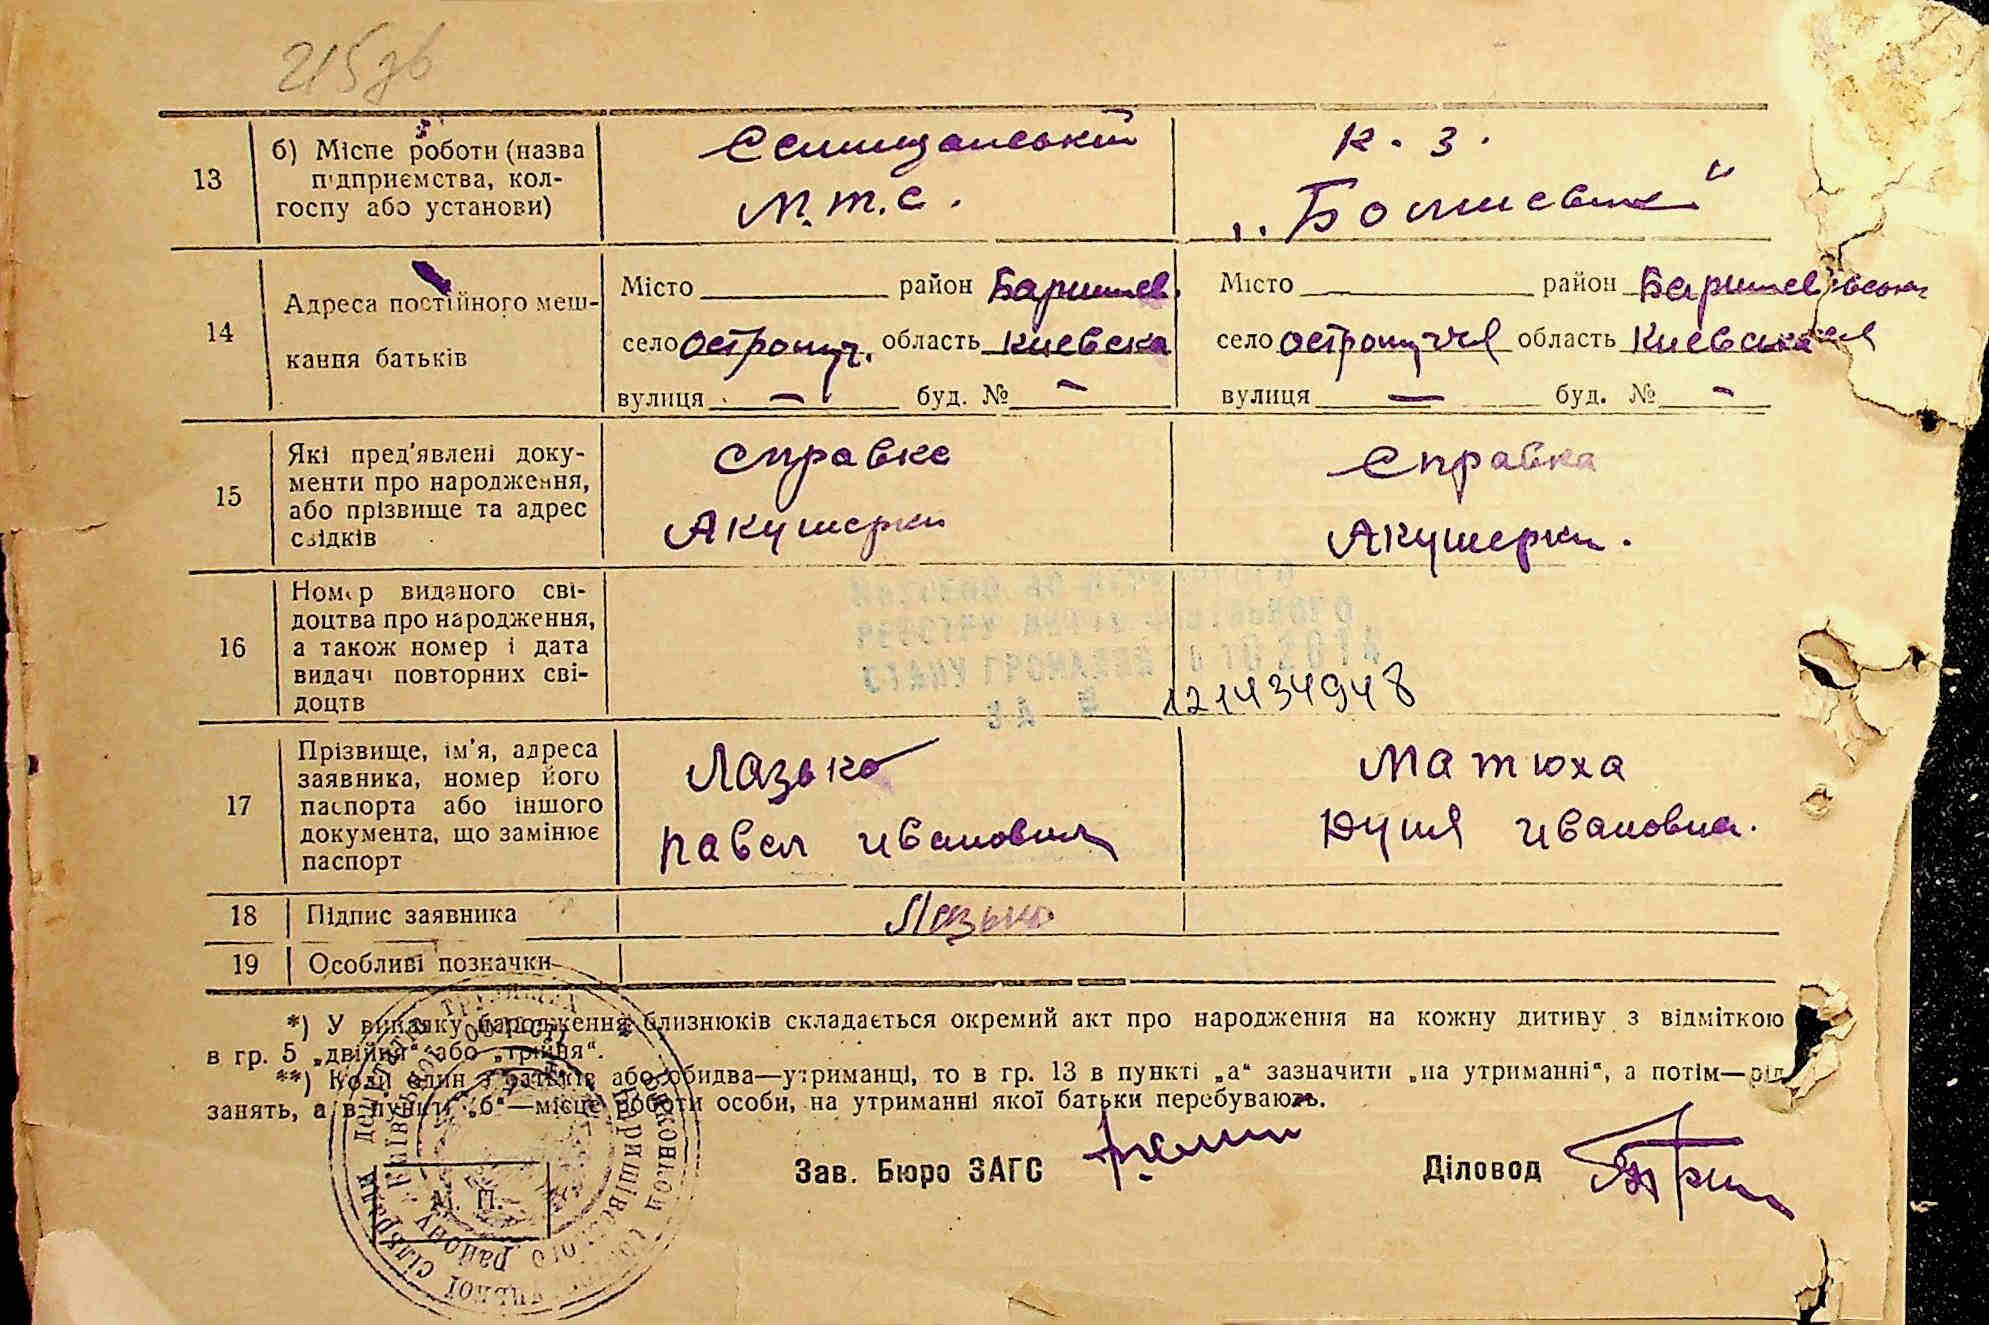 215зв
13 б) Місце роботи (назва підприємства, колгоспу або установи) Селищанській К. З.
М.Т.С. „Большевик“
14 Адреса постійного мешкання батьків
Місто район Баришев. Місто район Баришевська
село Остролуч. область Киевска село Остролуччя область Киевська
вулиця — буд. № — вулиця — буд. № —
15 Які пред'явлені документи про народження, або прізвище та адрес свідків
Справка Справка
Акушерки Акушерки.
16 Номер виданого свідоцтва про народження, а також номер і дата видачі повторних свідоцтв
РЕЄСТРУ
СТАНУ ГРОМАДЯН
121434948
17 Прізвище, ім'я, адреса заявника, номер його паспорта або іншого документа, що замінює паспорт
Лазько Матюха
Павел Иванович Ивановна.
18 Підпис заявника Лазько
19 Особливі позначки
*) У випадку народження близнюків складається окремий акт про народження на кожну дитину з відміткою
в гр. 5 „двійня“ або „трійня“.
**) Коли один з батьків або обидва—утриманці, то в гр. 13 в пункті „а“ зазначити „на утриманні“, а потім—рід
занять, а в пункті „б“—місце роботи особи, на утриманні якої батьки перебувають.
Зав. Бюро ЗАГС Діловод
М. П.